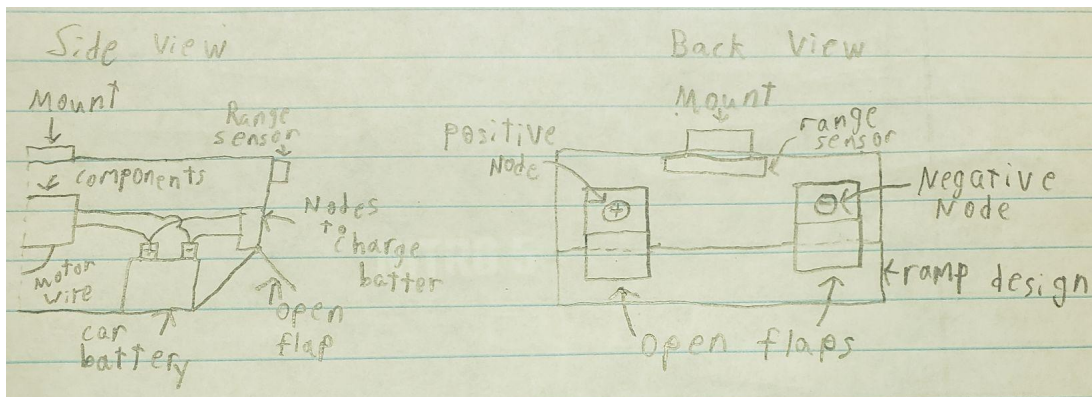 Side View
Mount
Range
sensor
components
Nodes
to
charge
batter
motor
wire
car
battery
open
flap
Back View
Mount
range
sensor
positive
Node
+
Negative
Node
ramp design
open flaps